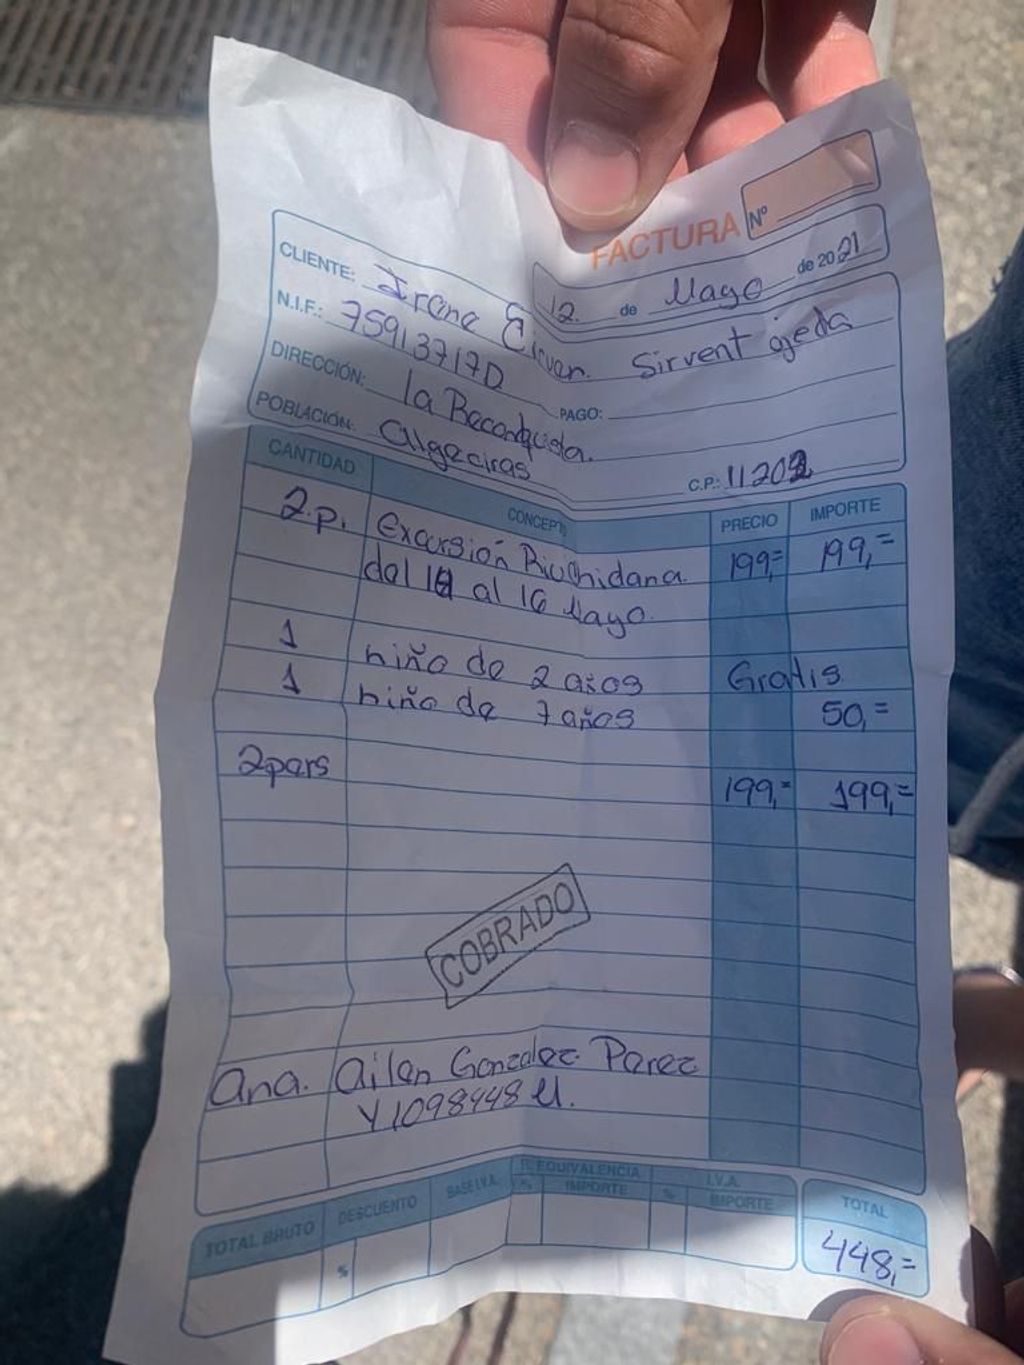 FACTURA Nº
12. de Mayo de 2021
CLIENTE: Irene Sirvent ojeda
N.I.F.: 75913717D
PAGO:
DIRECCIÓN: la Reconquista.
POBLACIÓN: algeciras C.P.: 11202
CANTIDAD CONCEPTO PRECIO IMPORTE
2.p. Excursión 199,= 199,=
del al 16 Mayo.
1 niño de 2 años Gratis.
1 niño de 7 años 50,=
2pers 199,= 199,=
COBRADO
Ana. Ailen Gonzalez Perez
TOTAL BRUTO DESCUENTO BASE I.V.A. R. EQUIVALENCIA I.V.A. TOTAL
% IMPORTE % IMPORTE
% 448,=